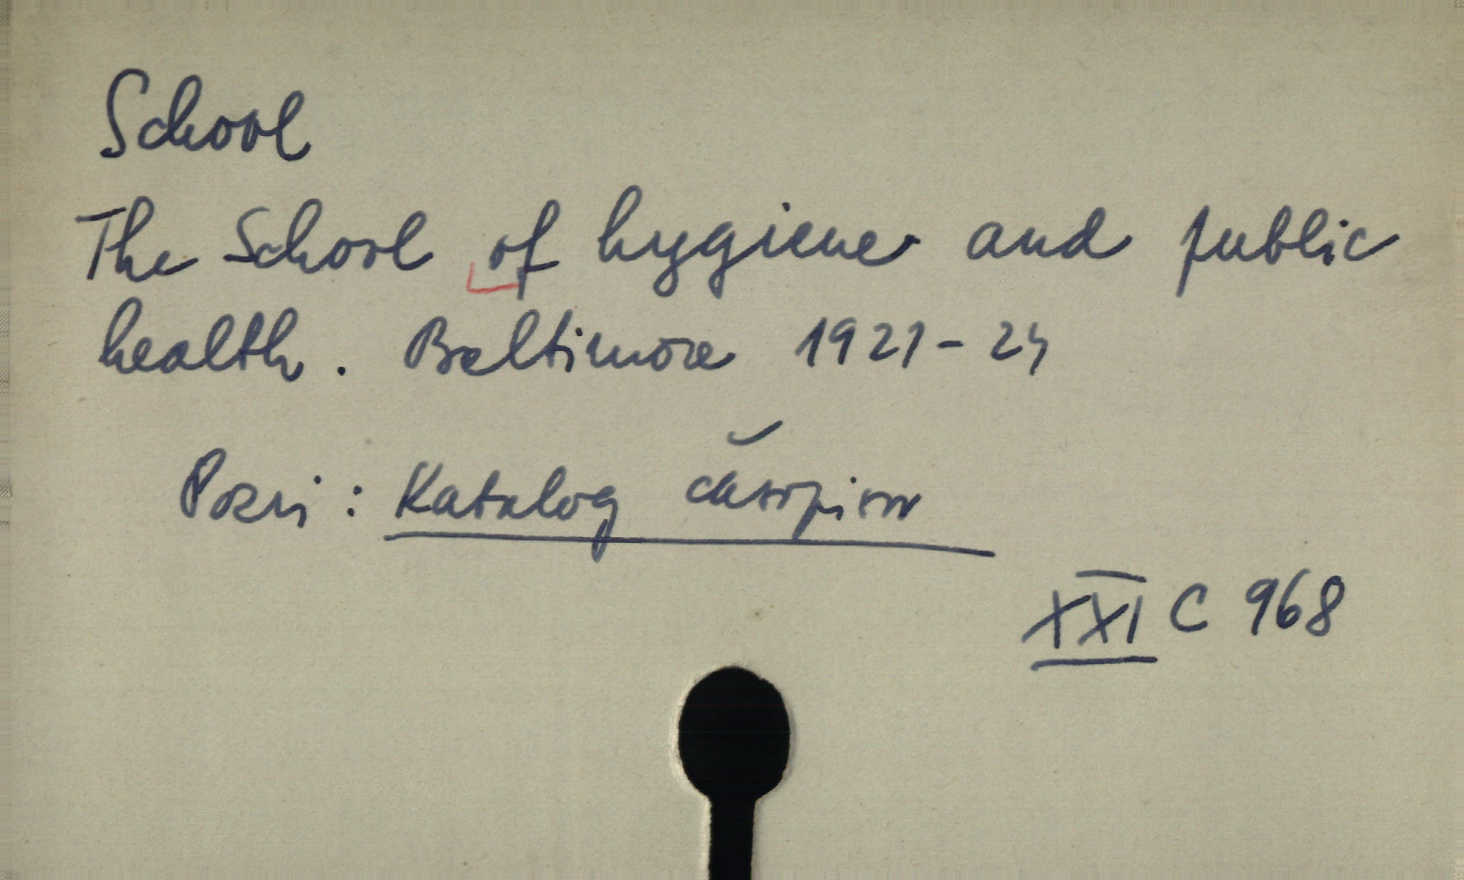 School
The School of hygiene and public
health. Baltimore 1921-24
Pozri: Katalog časopisov
XXI C 968